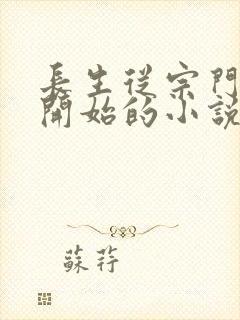 長生從宗門
開始的小說
蘇荇